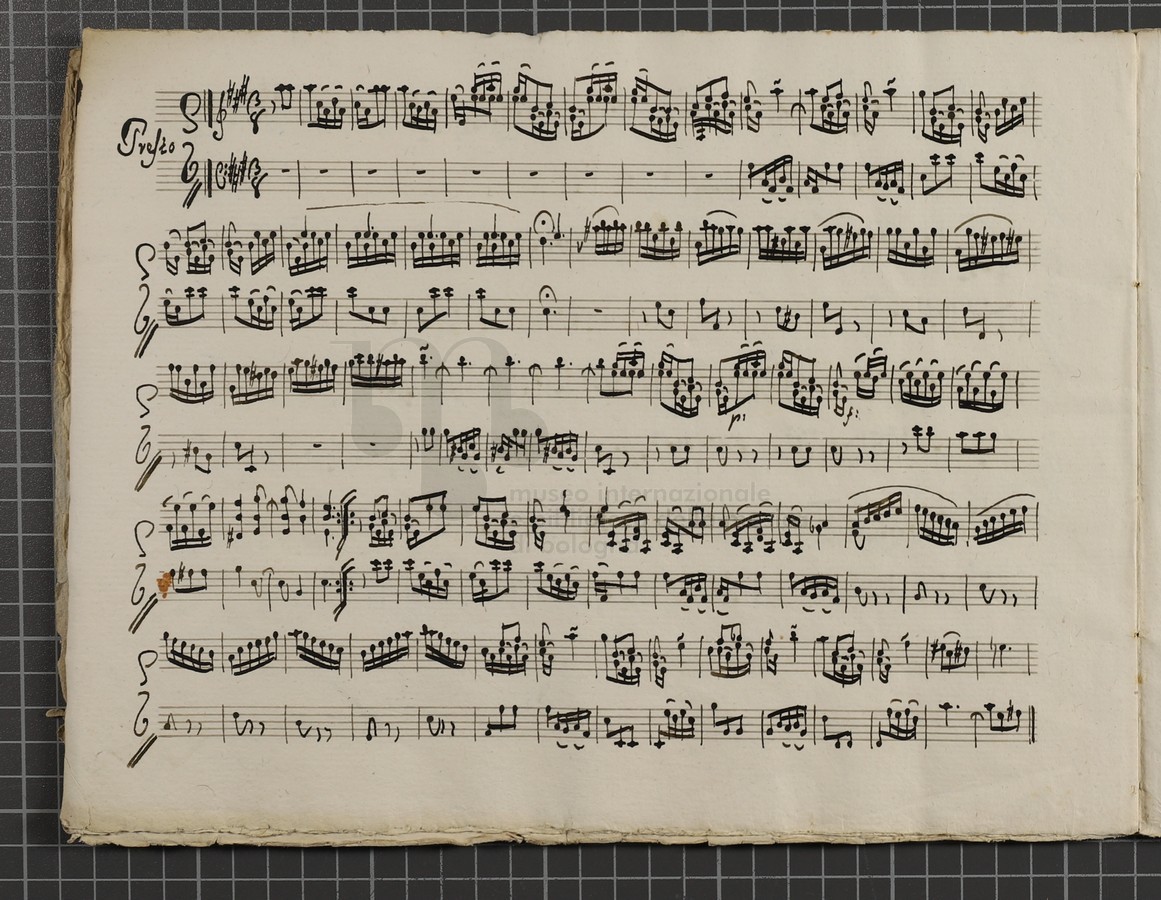 Presto
p:
f:
museo internazionale
di bologna